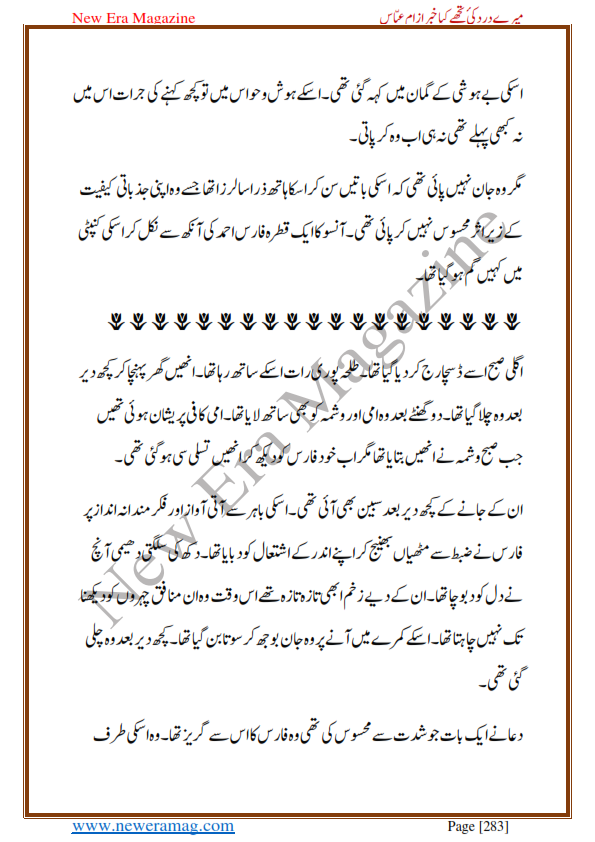 New Era Magazine میرے درد کی تجھے کیا خبر از ام عباس
اسکی بے ہوشی کے گمان میں کہہ گئی تھی۔ اسکے ہوش و حواس میں تو کچھ کہنے کی جرات اس میں
نہ کبھی پہلے تھی نہ ہی اب وہ کر پاتی۔
مگر وہ جان نہیں پائی تھی کہ اسکی باتیں سن کر اسکا ہاتھ ذرا سا لرزا تھا جسے وہ اپنی جذباتی کیفیت
کے زیر اثر محسوس نہیں کر پائی تھی۔ آنسو کا ایک قطرہ فارس احمد کی آنکھ سے نکل کر اسکی کنپٹی
میں کہیں گم ہو گیا تھا۔
اگلی صبح اسے ڈسچارج کر دیا گیا تھا۔ طلحہ پوری رات اسکے ساتھ رہا تھا۔ انھیں گھر پہنچا کر کچھ دیر
بعد وہ چلا گیا تھا۔ دو گھنٹے بعد وہ امی اور وشمہ کو بھی ساتھ لایا تھا۔ امی کافی پریشان ہوئی تھیں
جب صبح وشمہ نے انھیں بتایا تھا مگر اب خود فارس کو دیکھ کر انھیں تسلی سی ہو گئی تھی۔
ان کے جانے کے کچھ دیر بعد سبین بھی آئی تھی۔ اسکی باہر سے آتی آواز اور فکر مندانہ انداز پر
فارس نے ضبط سے مٹھیاں بھینچ کر اپنے اندر کے اشتعال کو دبایا تھا۔ دکھ کی سلگتی دھیمی آنچ
نے دل کو دبوچا تھا۔ ان کے دیے زخم ابھی تازہ تازہ تھے اس وقت وہ ان منافق چہروں کو دیکھنا
تک نہیں چاہتا تھا۔ اسکے کمرے میں آنے پر وہ جان بوجھ کر سوتا بن گیا تھا۔ کچھ دیر بعد وہ چلی
گئی تھی۔
دعا نے ایک بات جو شدت سے محسوس کی تھی وہ فارس کا اس سے گریز تھا۔ وہ اسکی طرف
New Era Magazine
www.neweramag.com Page [283]